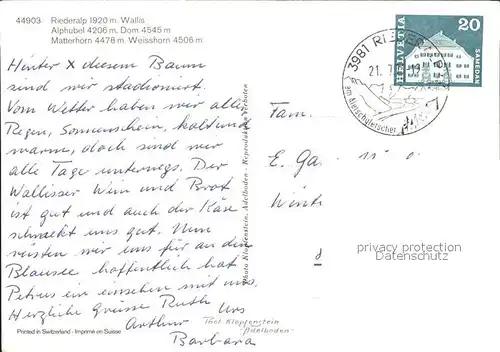 44903 Riederalp 1920 m. Wallis
Alphubel 4206 m. Dom 4545 m
Matterhorn 4478 m. Weisshorn 4506 m.
Hinter x diesem Baum
sind wir stationiert.
Vom Wetter haben wir alles
Regen, Sonnenschein, kalt und
warm, doch sind wir
alle Tage unterwegs. Der
Wallisser Wein und Brot
ist gut und auch der Käse
schmeckt uns gut. Nun
rüsten wir uns für an den
Blausee hoffentlich hat
Petrus ein einsehen mit uns.
Herzliche Grüsse Ruth
Urs
Arthur
Barbara
Printed in Switzerland - Imprimé en Suisse
Photo Klopfenstein, Adelboden - Reproduktion verboten
Thol. Klopfenstein
Adelboden
3981 RIEDERALP
21. 7.
am Aletschgletscher
HELVETIA
20
SAMEDAN
Fam.
E. Ga
privacy protection
DANRO.COM